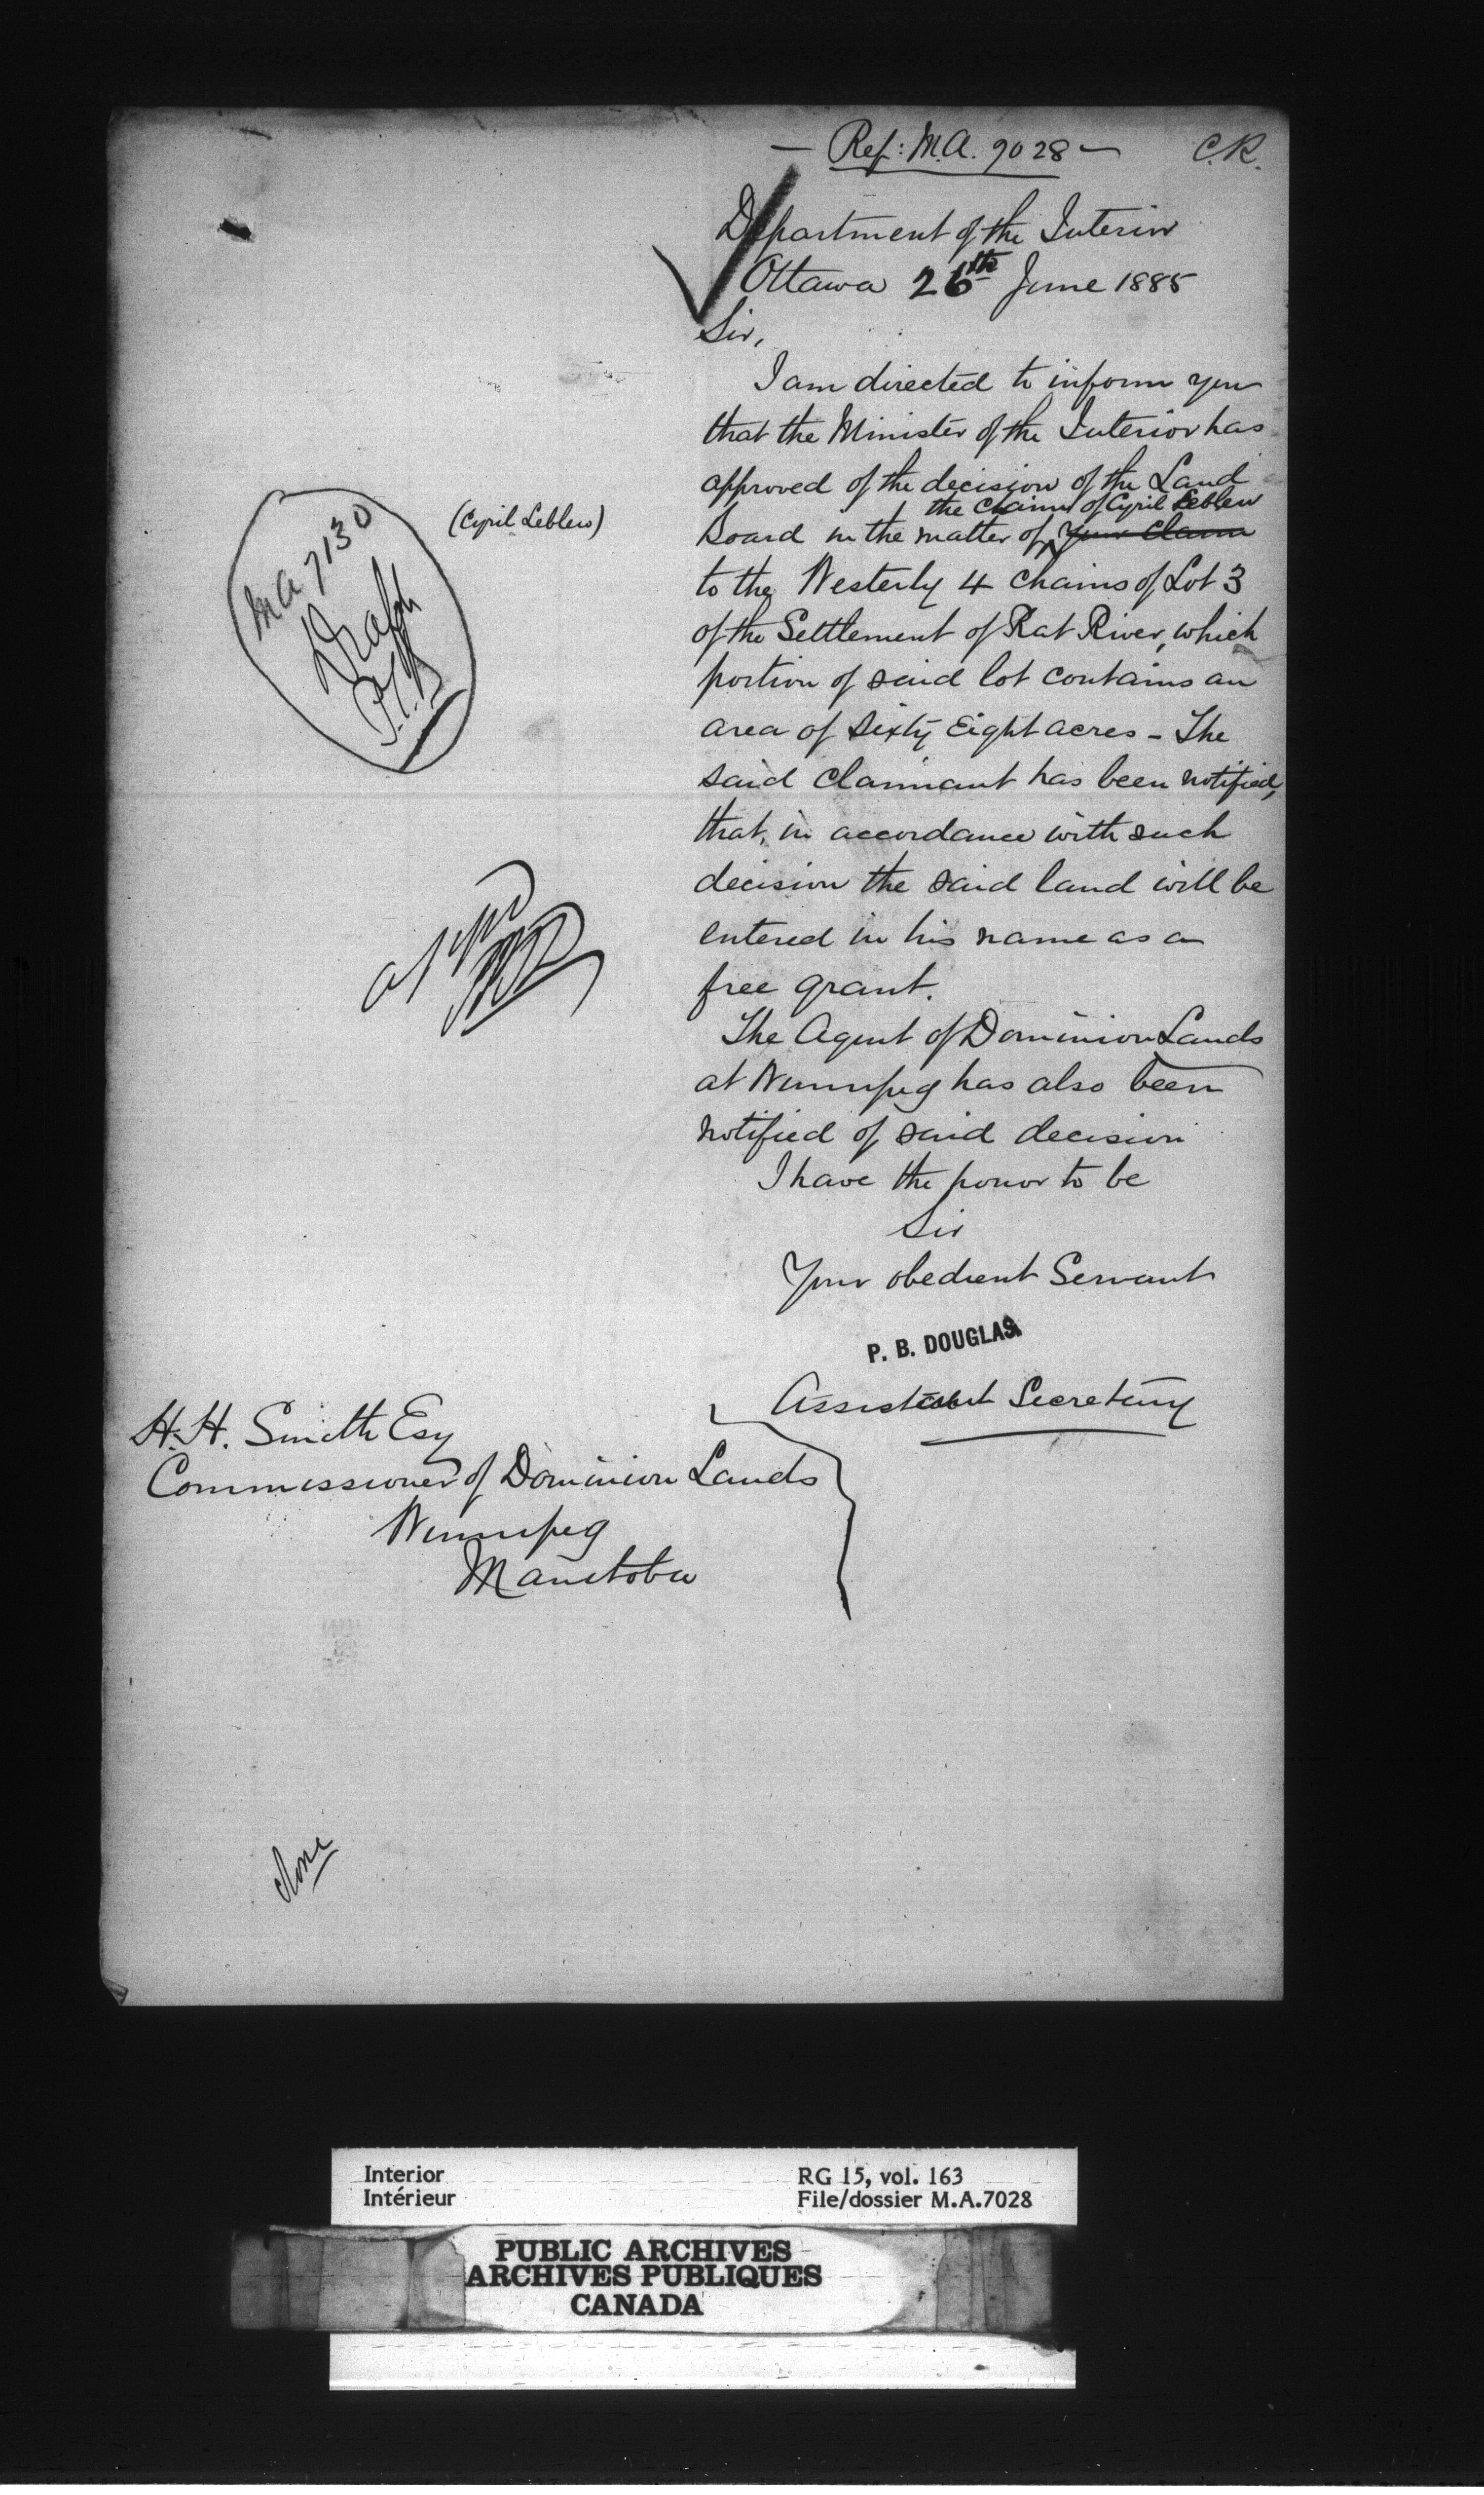 — Ref: M.A. 7028 — C.R.
Department of the Interior
Ottawa 26th June 1885
Sir,
I am directed to inform you
that the Minister of the Interior has
approved of the decision of the Land
the claim of Cyril Lebleu
Board in the matter of your claim
to the Westerly 4 chains of Lot 3
of the Settlement of Rat River, which
portion of said lot contains an
area of Sixty Eight acres - The
said claimant has been notified,
that, in accordance with such
decision the said land will be
entered in his name as a
free grant.
The Agent of Dominion Lands
at Winnipeg has also been
notified of said decision
I have the honor to be
Sir
Your obedient Servant
P. B. DOUGLAS
Assistant Secretary
(Cyril Leblew)
MA 7130
Draft
H.H. Smith Esq
Commissioner of Dominion Lands
Winnipeg
Manitoba
done
Interior
Intérieur
RG 15, vol. 163
File/dossier M.A.7028
PUBLIC ARCHIVES
ARCHIVES PUBLIQUES
CANADA